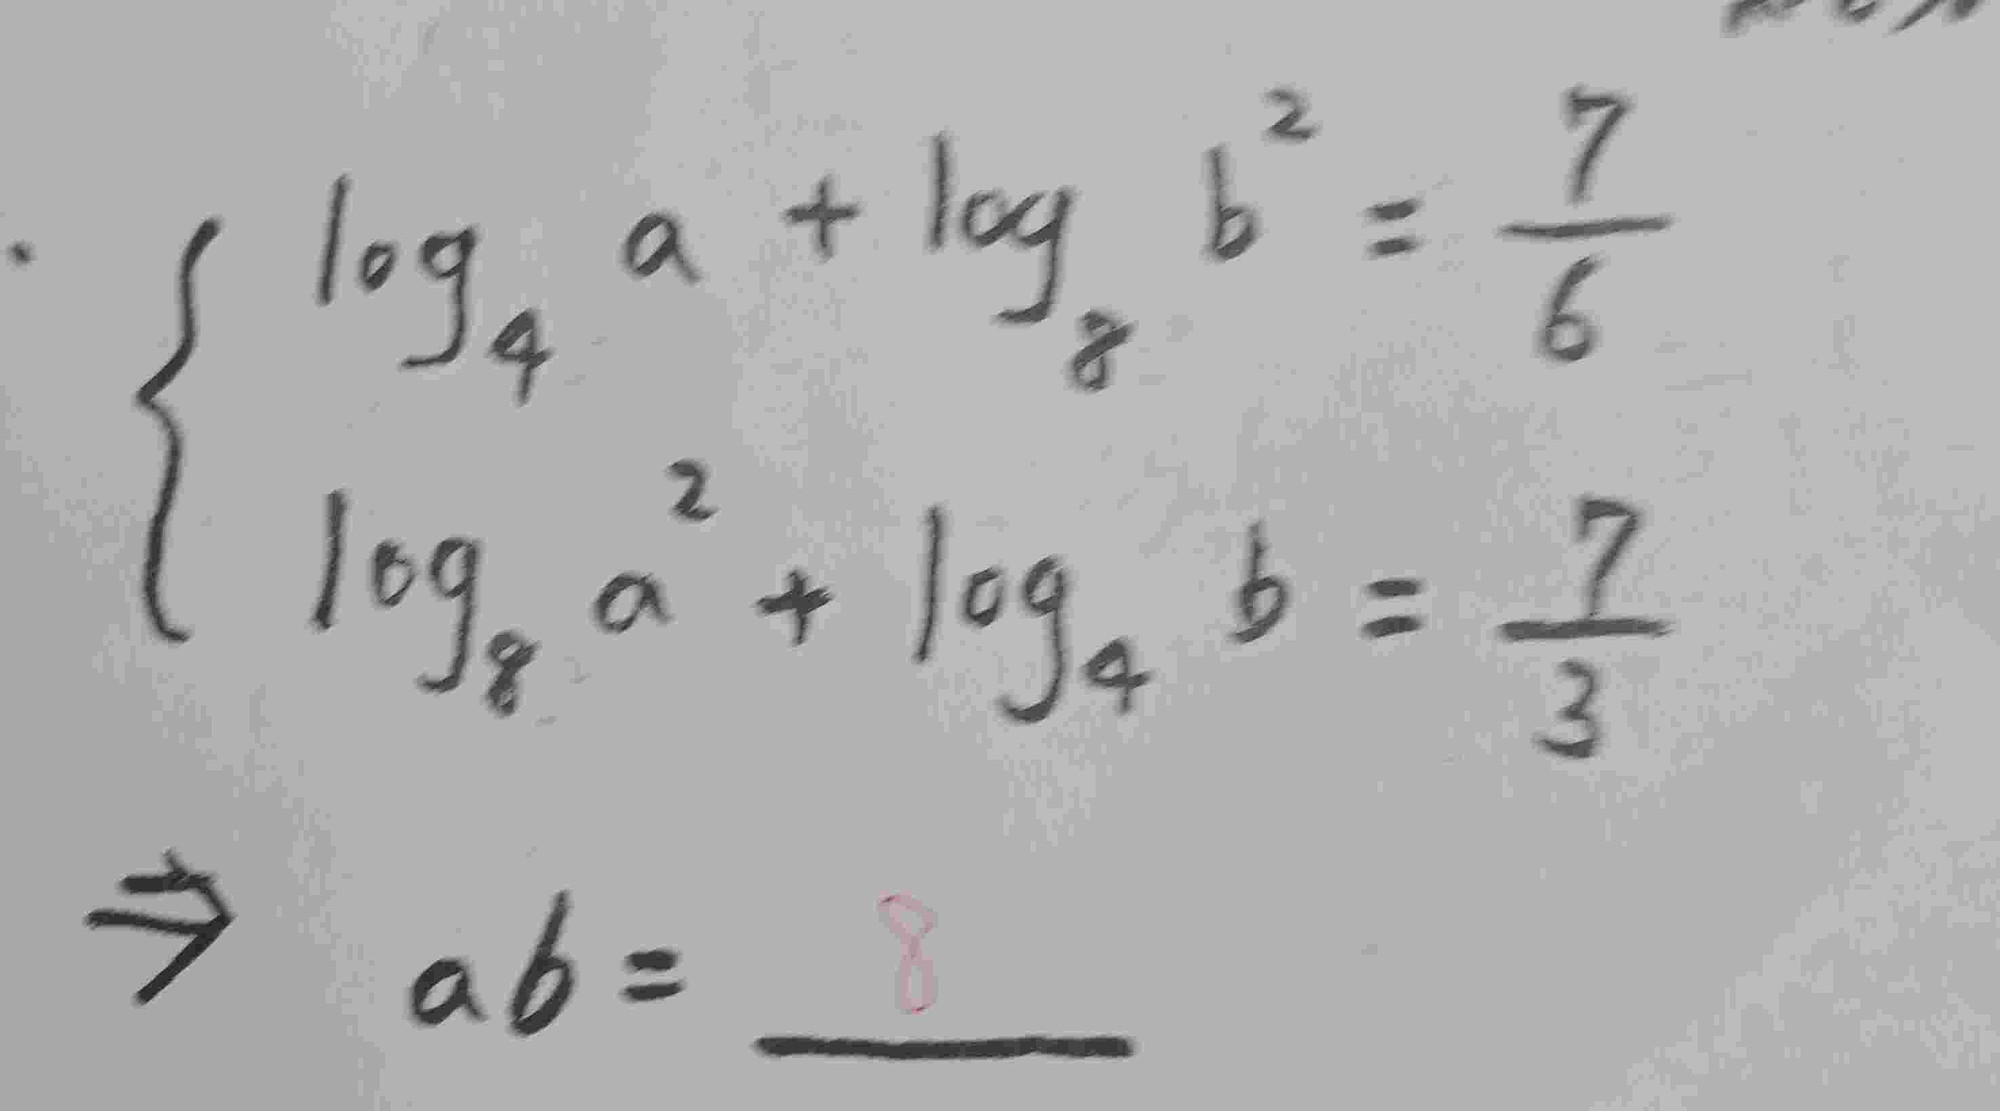 log₄ a + log₈ b² = 7/6
log₈ a² + log₄ b = 7/3
⇒ ab = 8